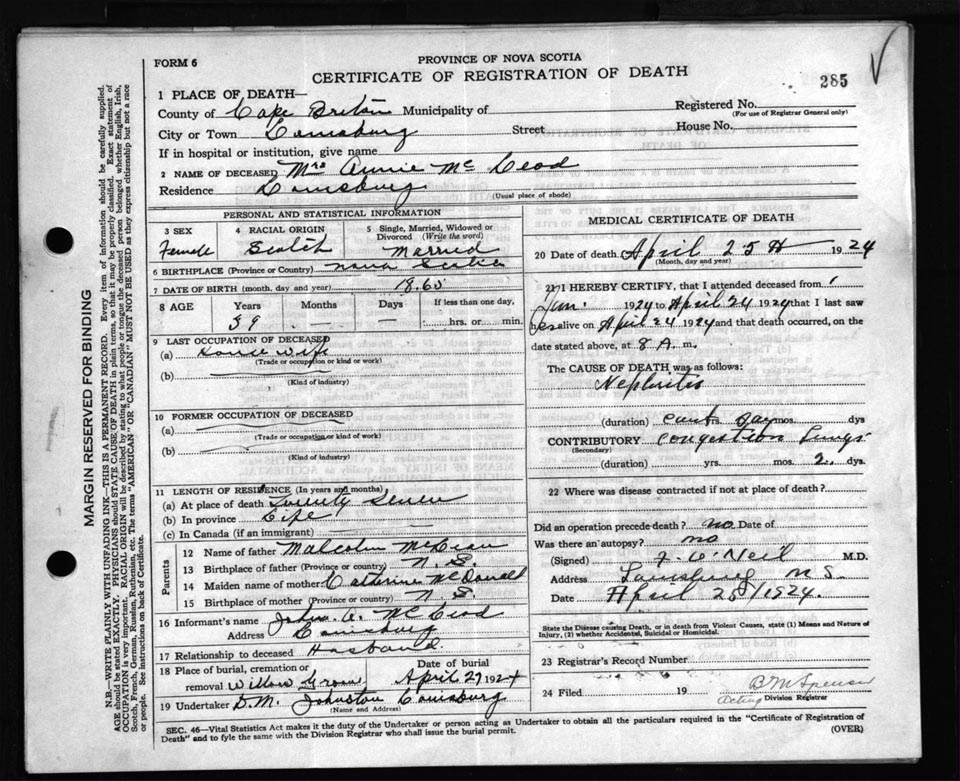 FORM 6
PROVINCE OF NOVA SCOTIA
CERTIFICATE OF REGISTRATION OF DEATH
285
1 PLACE OF DEATH—
County of Cape Breton Municipality of
Registered No.
(For use of Registrar General only)
City or Town Louisburg Street House No.
If in hospital or institution, give name
2 NAME OF DECEASED Mrs Annie McLeod
Residence Louisburg
(Usual place of abode)
PERSONAL AND STATISTICAL INFORMATION
3 SEX
Female
4 RACIAL ORIGIN
Scotch
5 Single, Married, Widowed or Divorced (Write the word)
Married
6 BIRTHPLACE (Province or Country) Nova Scotia
7 DATE OF BIRTH (month, day and year) 1865
8 AGE Years Months Days If less than one day,
59 — — hrs. or min.
9 LAST OCCUPATION OF DECEASED
(a) House wife
(Trade or occupation or kind or work)
(b)
(Kind of industry)
10 FORMER OCCUPATION OF DECEASED
(a)
(Trade or occupation, or kind of work)
(b)
(Kind of industry)
11 LENGTH OF RESIDENCE (In years and months)
(a) At place of death Twenty Seven
(b) In province Life
(c) In Canada (if an immigrant)
Parents
12 Name of father Malcolm
13 Birthplace of father (Province or country) N. S.
14 Maiden name of mother Catherine McDonald
15 Birthplace of mother (Province or country) N. S.
16 Informant's name John A. McLeod
Address Louisburg
17 Relationship to deceased Husband
18 Place of burial, cremation or removal Willow Grove
Date of burial
April 27 1924
19 Undertaker D.M. Johnston Louisburg
(Name and Address)
MEDICAL CERTIFICATE OF DEATH
20 Date of death April 25th 1924
(Month, day and year)
21 I HEREBY CERTIFY, that I attended deceased from
Jan. 1924 to April 24 1924 that I last saw
her alive on April 24 1924 and that death occurred, on the
date stated above, at 8 A. m.
The CAUSE OF DEATH was as follows:
Nephritis
(duration) cant say yrs. mos. dys
CONTRIBUTORY Congestion Lungs
(Secondary)
(duration) yrs. mos. 2 dys.
22 Where was disease contracted if not at place of death?
Did an operation precede death? no Date of
Was there an autopsy? no
(Signed) O'Neil M.D.
Address Louisburg N S.
Date April 25/1924.
State the Disease causing Death, or in death from Violent Causes, state (1) Means and Nature of
Injury, (2) whether Accidental, Suicidal or Homicidal.
23 Registrar's Record Number
24 Filed 19 B M Spencer
Acting Division Registrar
SEC. 46—Vital Statistics Act makes it the duty of the Undertaker or person acting as Undertaker to obtain all the particulars required in the "Certificate of Registration of
Death" and to fyle the same with the Division Registrar who shall issue the burial permit.
(OVER)
MARGIN RESERVED FOR BINDING
N.B.—WRITE PLAINLY WITH UNFADING INK—THIS IS A PERMANENT RECORD. Every item of information should be carefully supplied.
AGE should be stated EXACTLY. PHYSICIANS should STATE CAUSE OF DEATH in plain terms, so that it may be properly classified. Exact statement of
OCCUPATION is very important. RACIAL ORIGIN will be described by stating to what people or tongue the deceased person belonged, whether English, Irish,
Scotch, French, German, Russian, Ruthenian, etc. The terms "AMERICAN" OR "CANADIAN" MUST NOT BE USED as they express citizenship but not a race
or people. See instructions on back of Certificate.